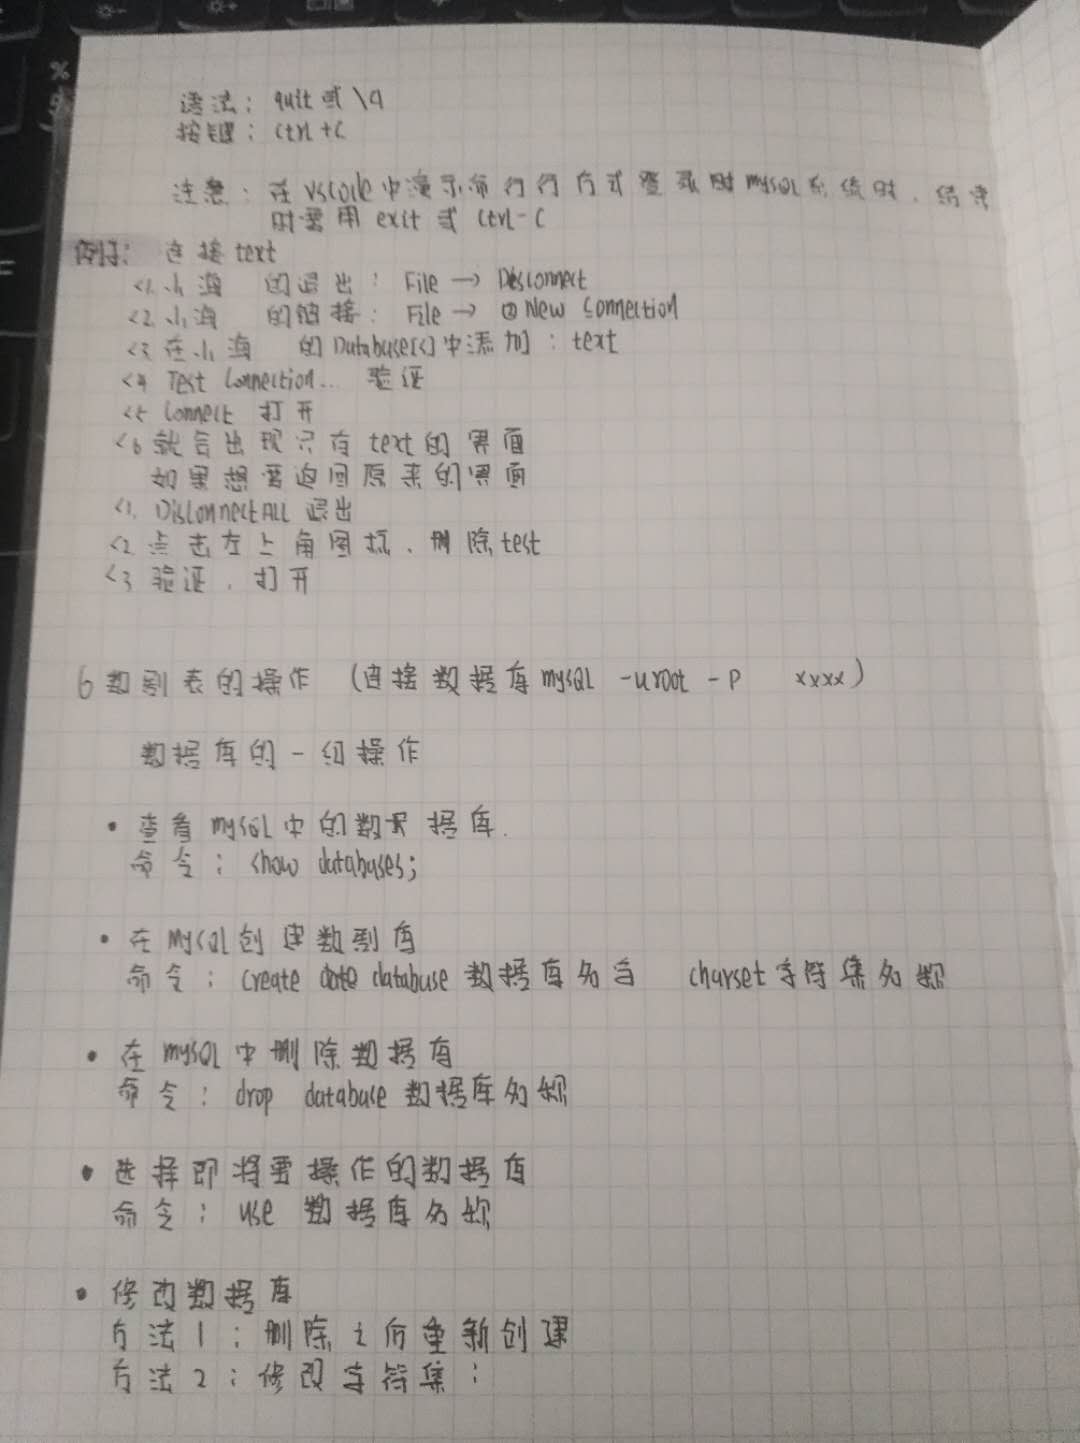 语法: quit 或 \q
按键: ctrl+C
注意: 在 vscode 中演示命行行方式登录时 mysQL 系统时, 结束
时需用 exit 或 Ctrl-C
例子: 连接 text
<1. 小海 的退出: File → Disconnect
<2. 小海 的链接: File → New Connection
<3 在小海 的 Database[s]中添加: text
<4 Test Connection... 验证
<5 Connect 打开
<6 就会出现只有 text 的界面
如果想要返回原来的界面
<1. DisConnectALL 退出
<2. 点击左上角图标、删除 test
<3 验证. 打开
6 数副表的操作 (连接数据库 mysQL -uroot -p xxxx)
数据库的一组操作
• 查看 mysQL 中的数据库.
命令: show databases;
• 在 MysQL 创建数副库
命令: create database 数据库名 charset 字符集名称
• 在 mysQL 中删除数据库
命令: drop database 数据库名称
• 选择即将要操作的数据库
命令: use 数据库名称
• 修改数据库
方法 1: 删除之后重新创建
方法 2: 修改字符集: